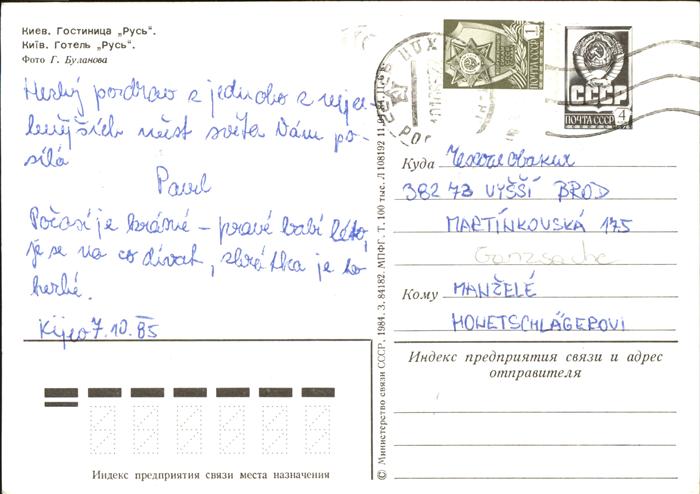 Киев. Гостиница „Русь“.
Київ. Готель „Русь“.
Фото Г. Буланова
Hezký pozdrav z jednoho z nej-
lepších měst světa Vám po-
sílá
Pavel
Počasí je krásné – pravé babí léto,
je se na co dívat, zkrátka je to
hezké.
Kijev 7.10.85
© Министерство связи СССР, 1984. З. 84182. МПФГ. Т. 100 тыс. Л 108192 11.
1
ПОЧТА СССР
СССР
ПОЧТА СССР 4
Куда Чехословакия
382 73 VYŠŠÍ BROD
MARTÍNKOVSKÁ 175
Ganzsache
Кому MANŽELÉ
HONETSCHLÄGEROVI
Индекс предприятия связи и адрес
отправителя
Индекс предприятия связи места назначения